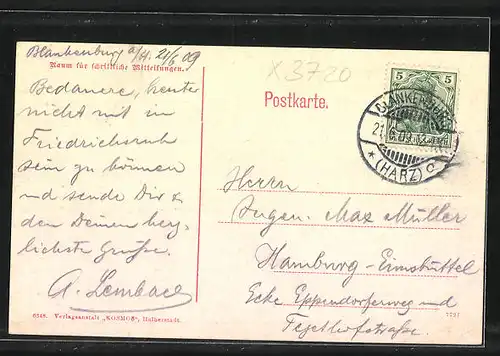 Blankenburg a/H. 21/6 09
Raum für schriftliche Mitteilungen.
Bedauere, heute
nicht mit in
Friedrichsruh
sein zu können
und sende Dir &
den Deinen herz-
lichste Grüße.
A. Lembach
6248. Verlagsanstalt „KOSMOS", Halberstadt.
X3720
Postkarte.
5 5
BLANKENBURG
21.6.09
* (HARZ) c
Herrn
Ingen. Max Müller
Hamburg-Eimsbüttel
Ecke Eppendorferweg und
Tegetthofstraße.